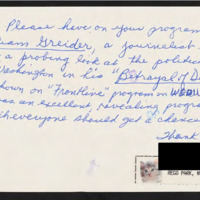 Please have on your program
iam Greider, a journalist
a probing look at the politica
Washington in his "Betrayal of D
hown on "Frontline" program on WEDU
as an excellent, revealing progra
h everyone should get a chance
Thank
REGO PARK, N